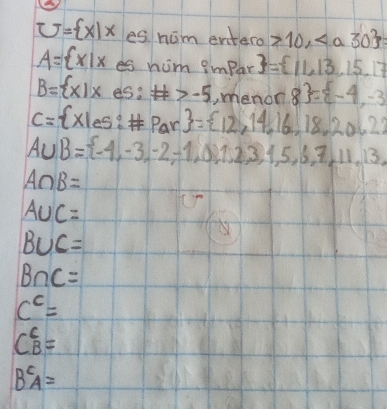 U={x|x es núm entero >10, <a 30}=
A={x|x es núm impar}={11,13,15,17
B={x|x es: # >-5, menor 8}={-4,-3
C={x|es: # Par}={12,14,16,18,20,22
A∪B={-4,-3,-2,-1,0,1,2,3,4,5,6,7,11,13,
A∩B=
A∪C=
B∪C=
B∩C=
Cᶜ=
Cᶜ_B=
Bᶜ_A=